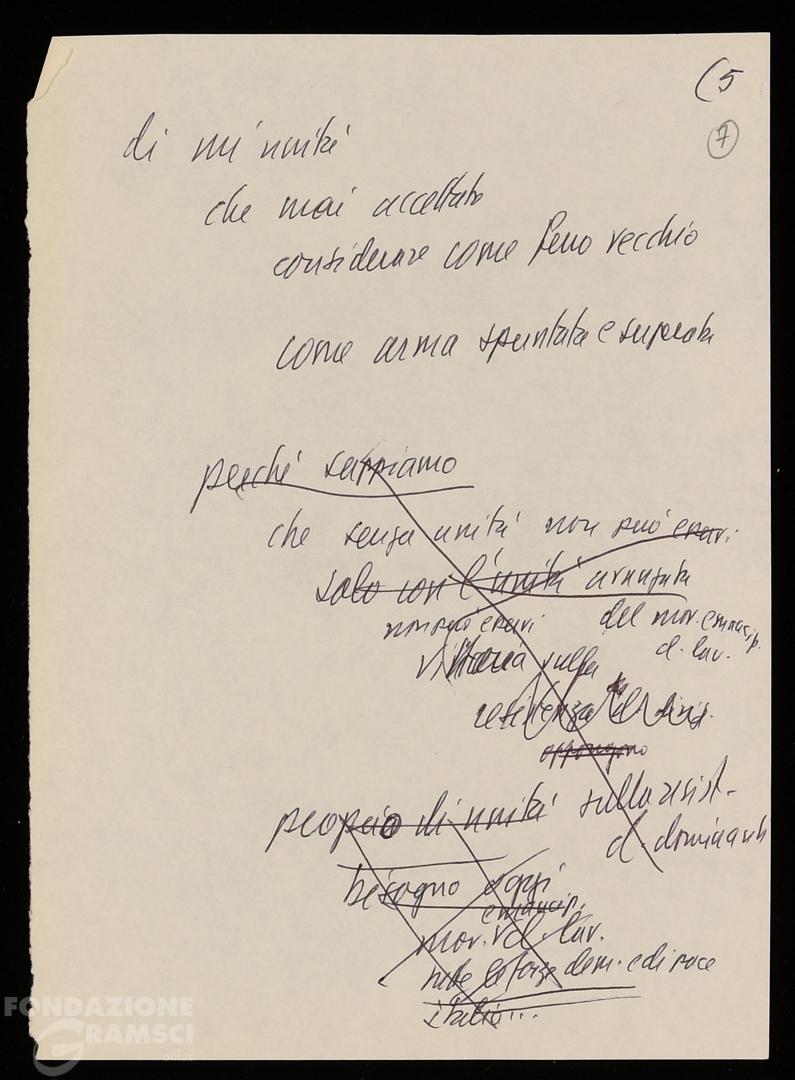 (5
7
di un'unità
che mai accettato
considerare come ferro vecchio
come arma spuntata e superata
perché sappiamo
che senza unità non può esserci
solo con l'unità avanzata
non può esservi del mov. emancip.
d. lav.
vittoria sulla
resistenza
oppongono
proprio di unità sulla resist-
d. dominanti
bisogno oggi
emancip.
mov. d. lav.
tutte le forze dem. e di pace
italia...
FONDAZIONE
GRAMSCI
onlus